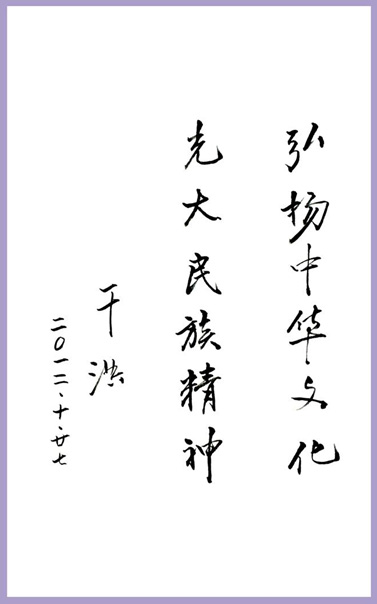 弘扬中华文化
光大民族精神
于洪
二〇一二、十、廿七